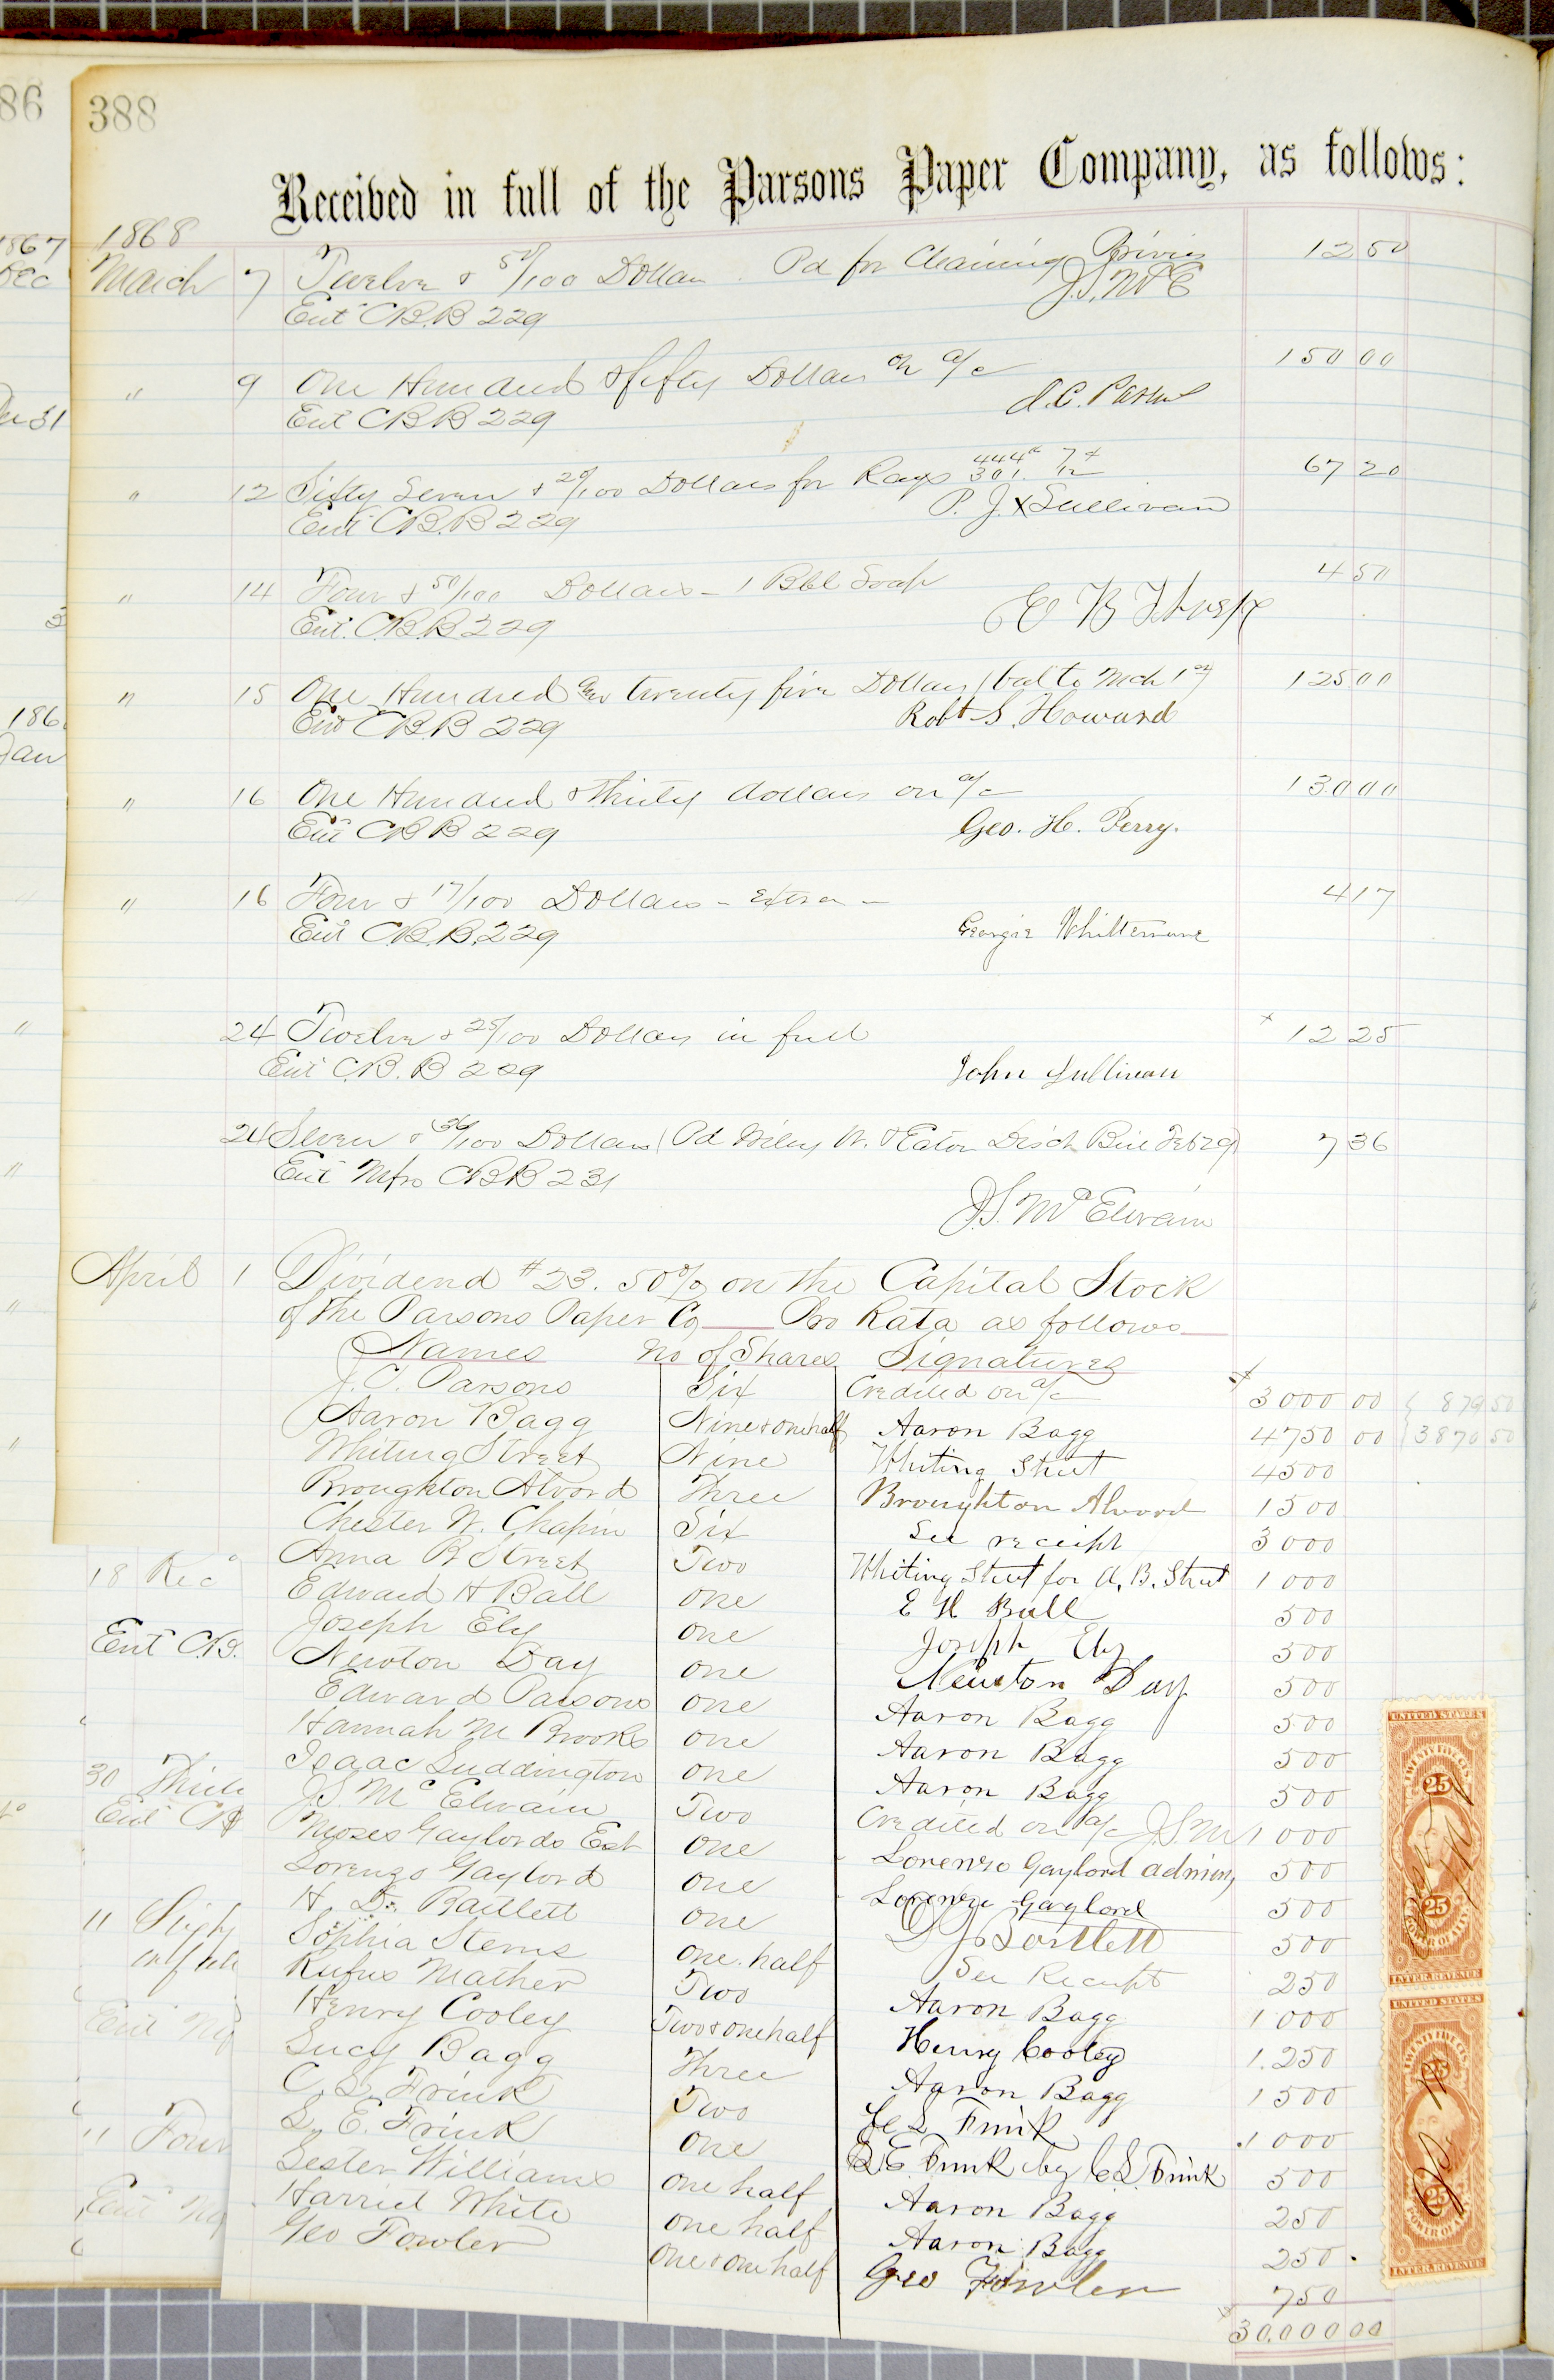 86
388
Received in full of the Parsons Paper Company, as follows:
1867
Dec
1868
March 7 Twelve & 50/100 Dollars Pd for Cleaning Privies 12 50
J.S. McE
Ent C.B.B 229
" 9 One Hundred & fifty Dollars on a/c 150 00
Ent C.B.B 229 J.C. Parsons
444 7
" 12 Sixty Seven & 20/100 Dollars for Rags 301. 12 67 20
Ent C.B.B 229 P. J. X Sullivan
" 14 Four & 50/100 Dollars - 1 Bbl Soap 4 50
Ent. C.B.B 229
" 15 One Hundred and twenty five Dollars (bal to Mch 1st) 125 00
Ent C.B.B 229 Robt S. Howard
" 16 One Hundred & thirty dollars on a/c 130 00
Ent C.B.B 229 Geo. H. Perry.
" 16 Four & 17/100 Dollars - Extra - 4 17
Ent C.B.B. 229 Georgie Whittemore
24 Twelve & 25/100 Dollars in full x 12 25
Ent C.B.B 229 John Sullivan
24 Seven & 36/100 Dollars (Pd Wiley W. & Eaton Disch Bill Feb 29) 7 36
Ent Mfrs C.B.B 231
J.S. McElwain
April 1 Dividend #23. 50% on the Capital Stock
of the Parsons Paper Co Pro Rata as follows
Names No of Shares Signatures
J.C. Parsons Six Credited on a/c 3000 00 879 50
Aaron Bagg Nine & one half Aaron Bagg 4750 00 3870 50
Whiting Street Nine Whiting Street 4500
Broughton Alvord Three Broughton Alvord 1500
Chester W. Chapin Six See receipt 3000
Anna B Street Two Whiting Street for A. B. Street 1000
Edward H Ball one E H Ball 500
Joseph Ely one Joseph Ely 500
Newton Day one Newton Day 500
Edward Parsons one Aaron Bagg 500
Hannah M Brooks one Aaron Bagg 500
Isaac Luddington one Aaron Bagg 500
J.S. McElwain Two Credited on a/c JSM 1000
Moses Gaylords Est one Lorenzo Gaylord admin, 500
Lorenzo Gaylord one Lorenzo Gaylord 500
H. D. Bartlett one Bartlett 500
Sophia Stems one half See Receipt 250
Rufus Mather Two Aaron Bagg 1000
Henry Cooley Two & one half Henry Cooley 1.250
Lucy Bagg Three Aaron Bagg 1500
C. L. Frink Two C L Frink 1000
L. E. Frink one L E Frink by C.L. Frink 500
Lester Williams one half Aaron Bagg 250
Harriet White one half Aaron Bagg 250
Geo Fowler One & one half Geo Fowler 750
30,000 00
31
186
Jan
18 Rec
Ent C.B.
30
Ent C.B
11
Ent
11 Four
Ent
UNITED STATES
TWENTY FIVE CTS
25
25
POWER OF ATT'Y
INTER. REVENUE
UNITED STATES
TWENTY FIVE CTS
25
25
POWER OF ATT'Y
INTER. REVENUE